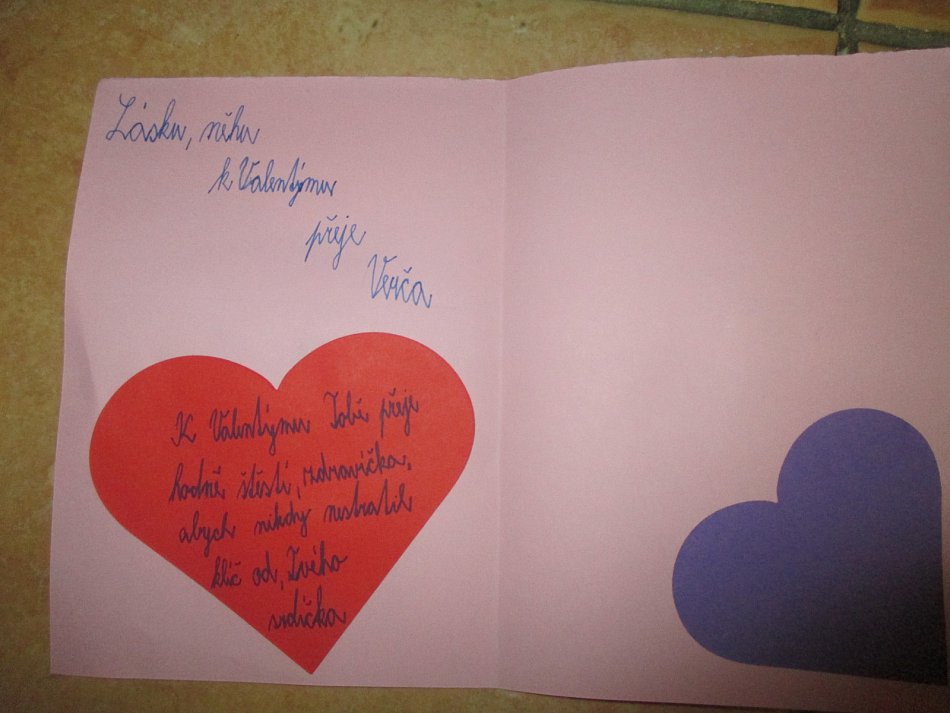 Lásku, něhu
k Valentýnu
přeje
Verča
K Valentýnu Tobě přeje
hodně štěstí, zdravíčka,
abych nikdy nestratil
klíč od, Tvého
srdíčka